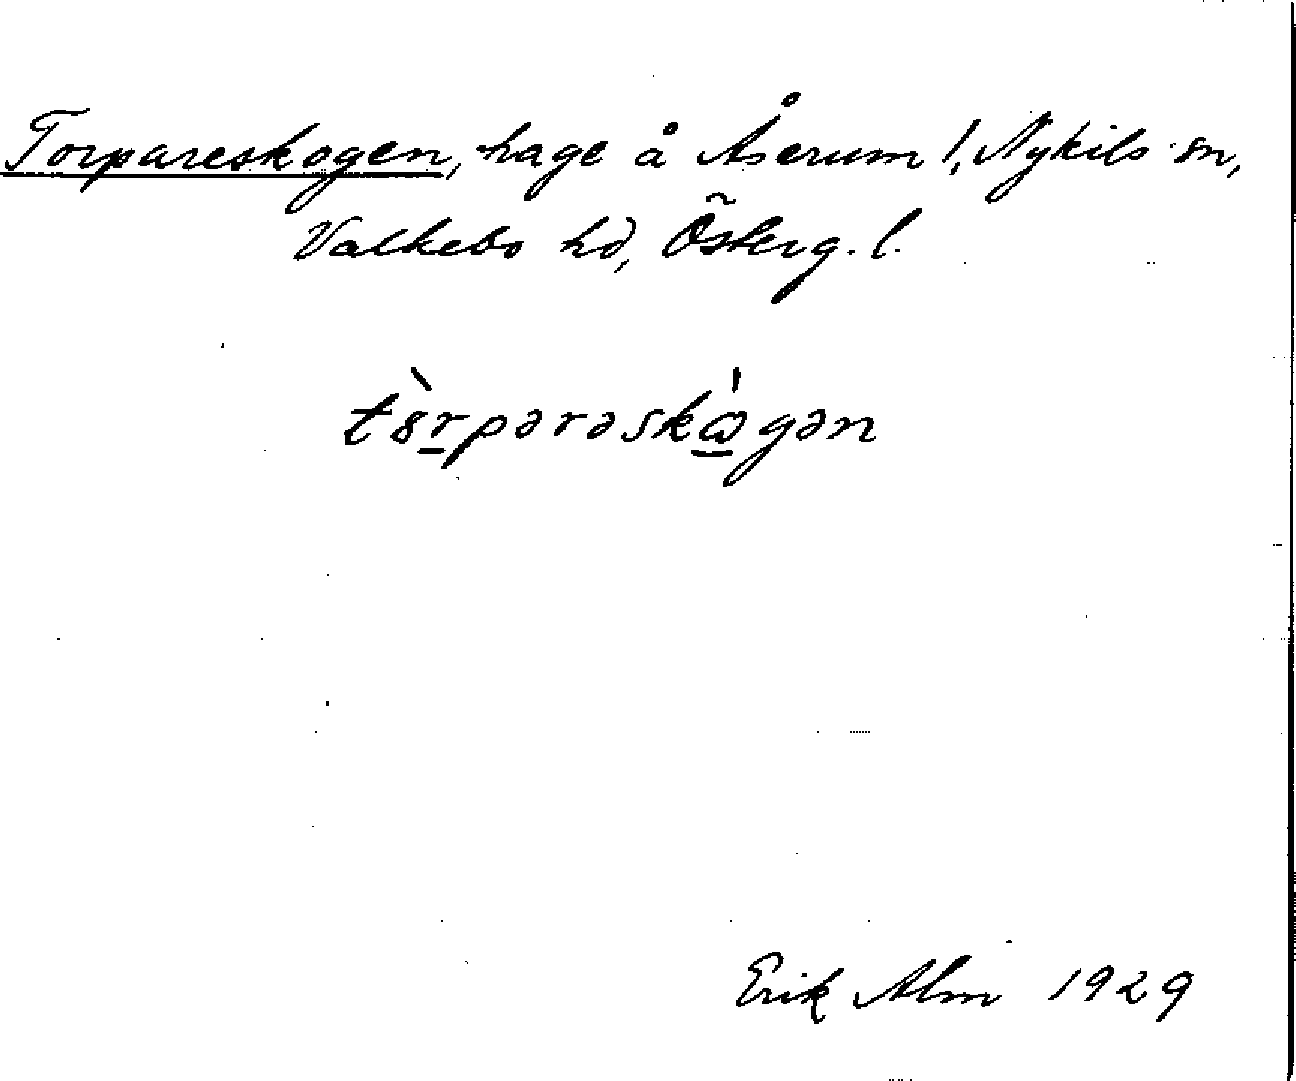 Torpareskogen, hage å Åserum !, Nykils sn,
Valkebo hd, Österg. l.
tȣ̀rpərəskɷ̀gən
Erik Alm 1929